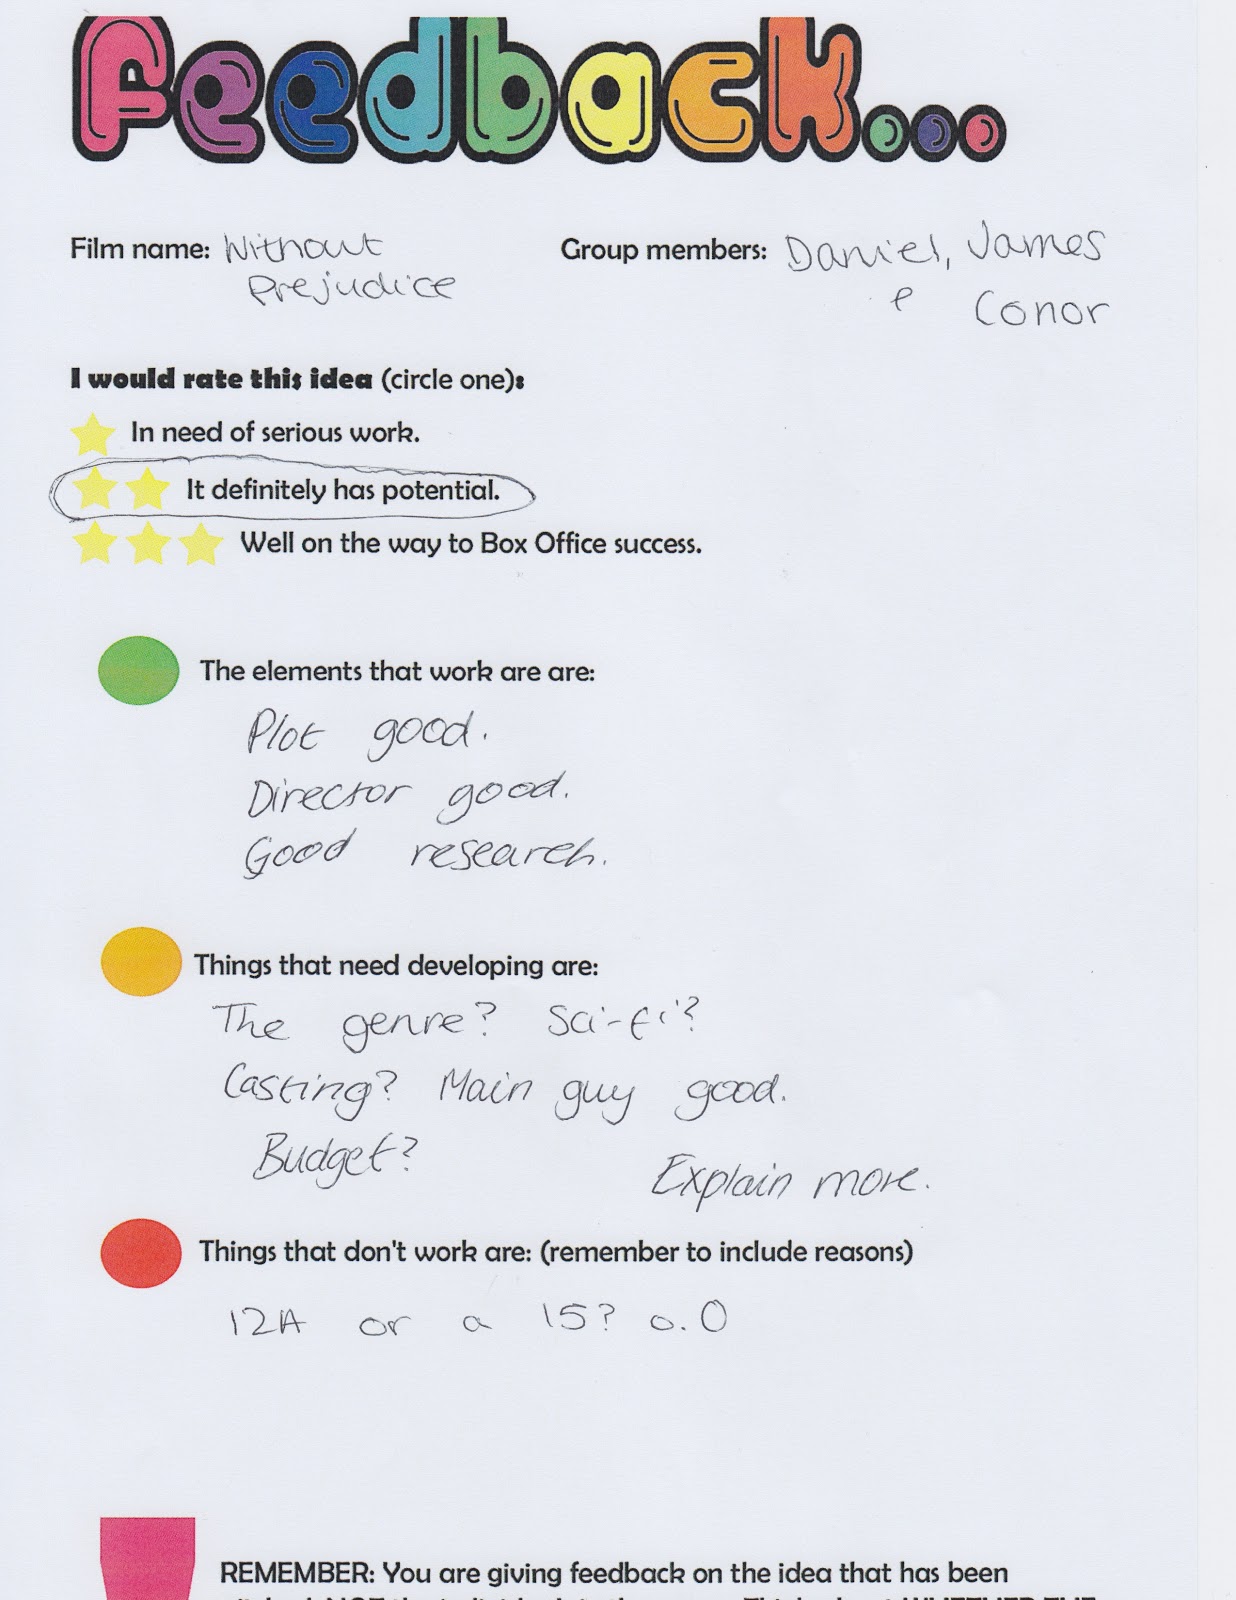 Feedback...
Film name: Without Prejudice
Group members: Daniel, James & Conor
I would rate this idea (circle one):
In need of serious work.
It definitely has potential.
Well on the way to Box Office success.
The elements that work are are:
Plot good.
Director good.
Good research.
Things that need developing are:
The genre? Sci-fi?
Casting? Main guy good.
Budget?
Explain more.
Things that don't work are: (remember to include reasons)
12A or a 15? o.O
REMEMBER: You are giving feedback on the idea that has been